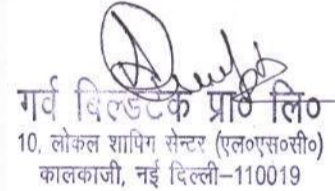 गर्व बिल्डटेक प्रा० लि०
10, लोकल शापिग सेन्टर (एल०एस०सी०)
कालकाजी, नई दिल्ली–110019